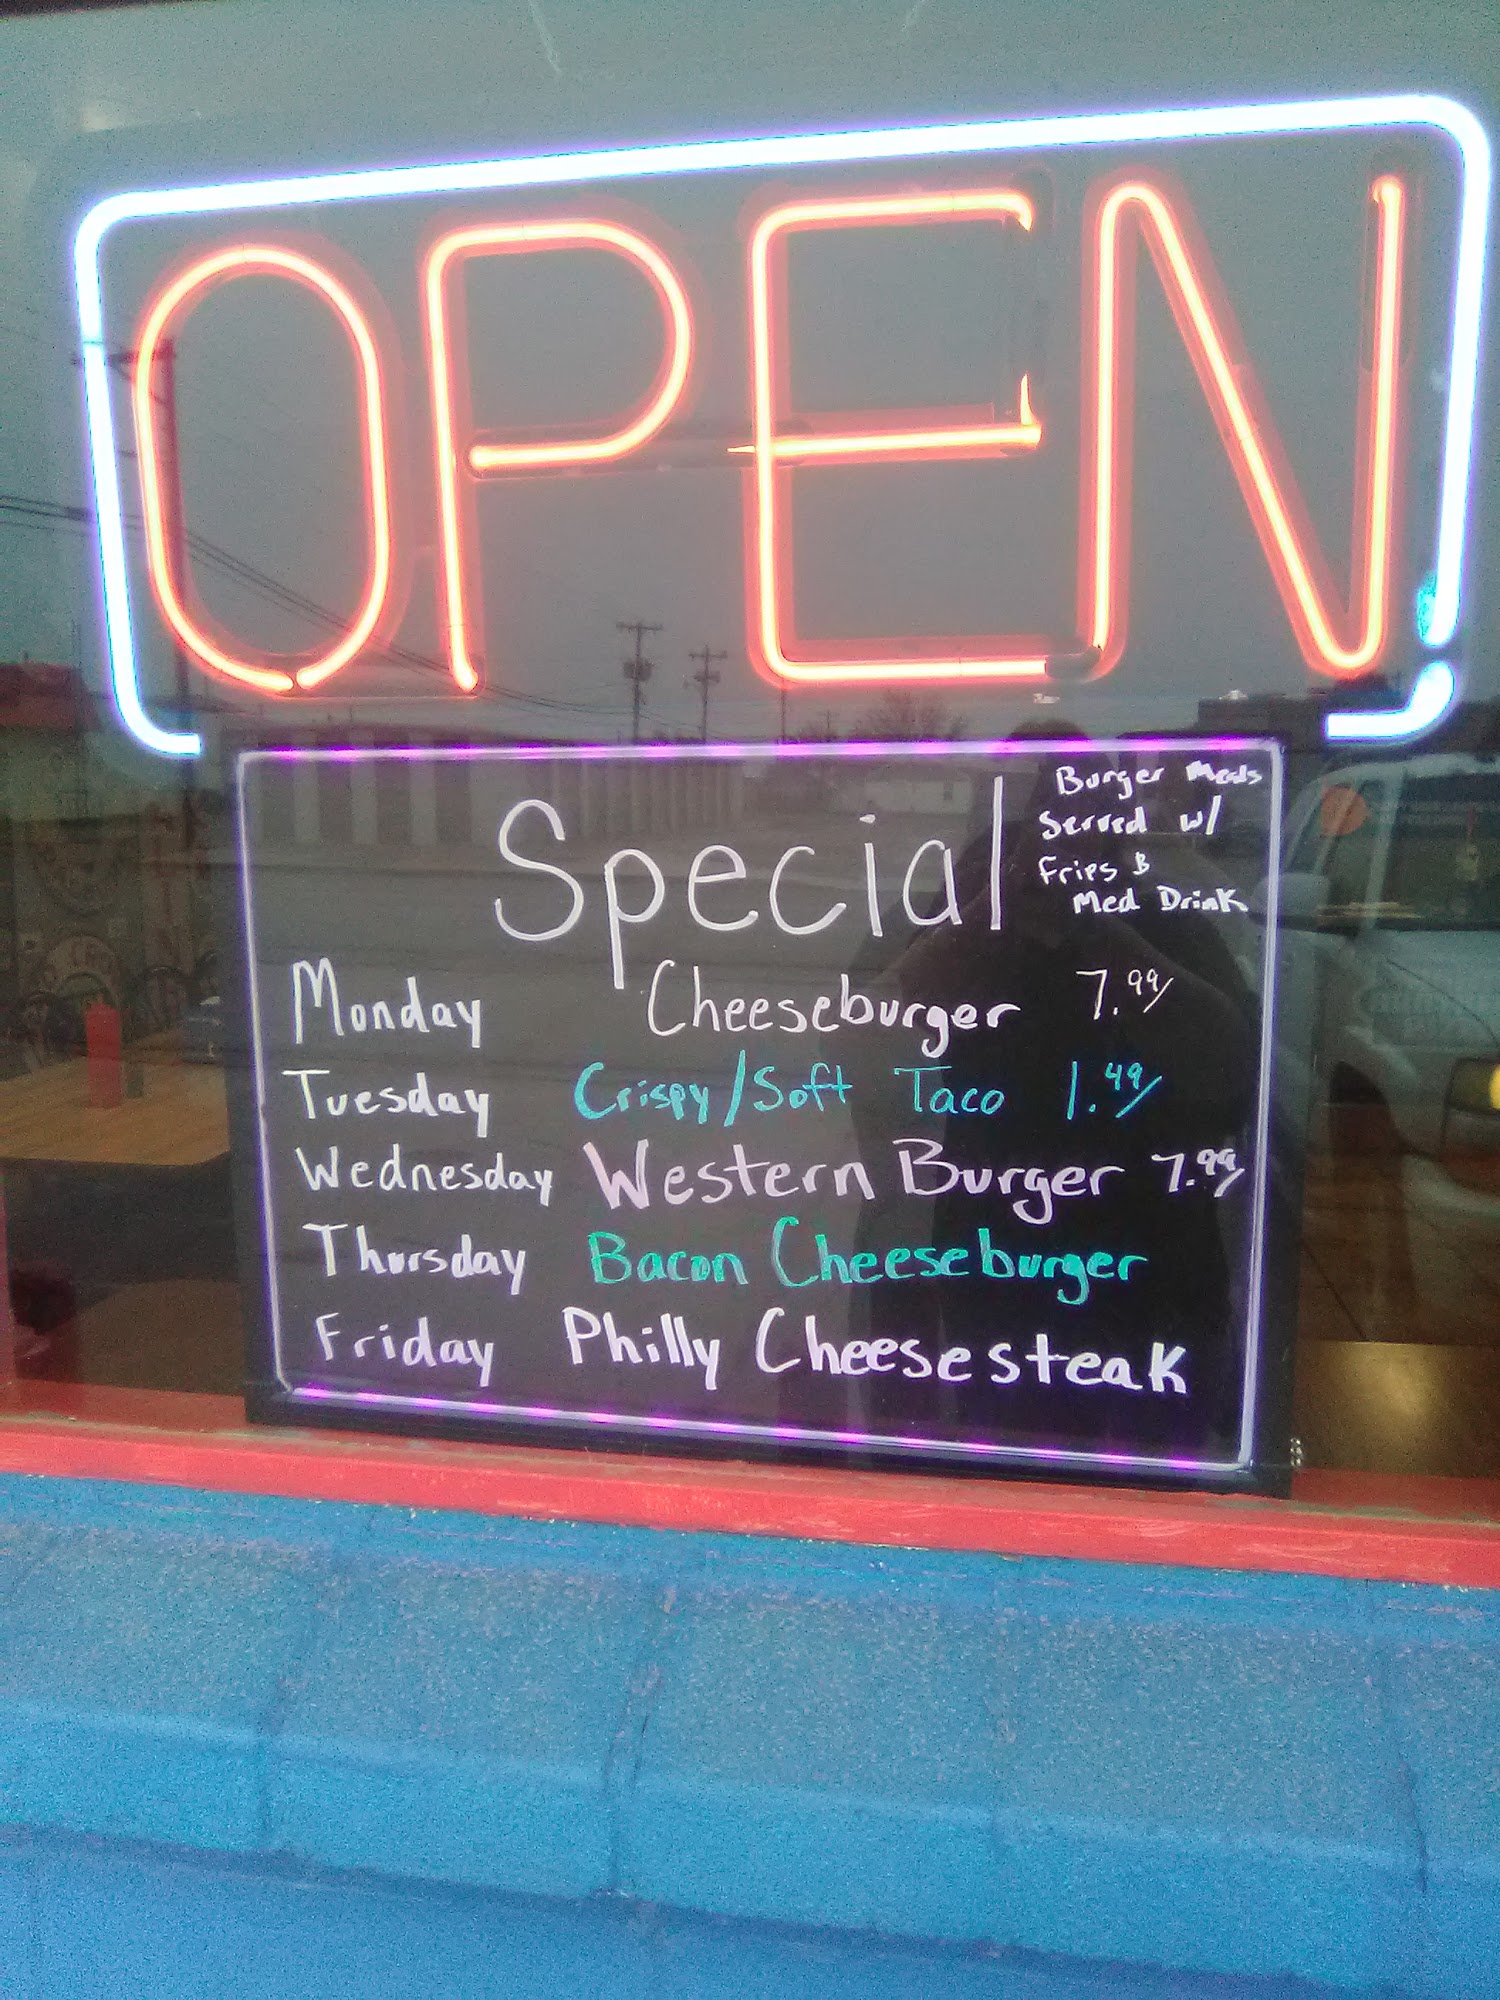 OPEN
Special
Burger Meals
Served w/
Fries &
Med Drink
Monday Cheeseburger 7.99/
Tuesday Crispy/Soft Taco 1.49/
Wednesday Western Burger 7.99/
Thursday Bacon Cheeseburger
Friday Philly Cheesesteak